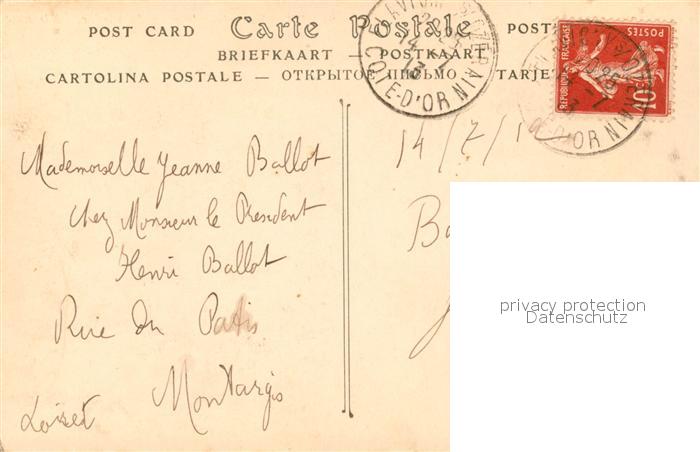 POST CARD Carte Postale POST
BRIEFKAART — POSTKAART
CARTOLINA POSTALE — ОТКРЫТОЕ ПИСЬМО — TARJET
CÔTE-D'OR
14 - 7
13
POSTES
REPUBLIQUE FRANÇAISE
10c
14/7/1
Mademoiselle Jeanne Ballot
Chez Monsieur le President
Henri Ballot
Rue du Patis
Montargis
Loiret
Ba
privacy protection
Datenschutz